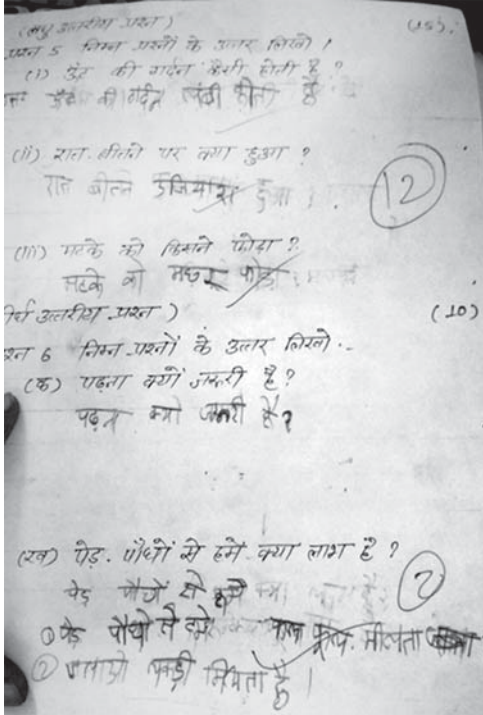 (लघु उत्तरीय प्रश्न) (15)
प्रश्न 5 निम्न प्रश्नों के उत्तर लिखो।
(i) ऊँट की गर्दन कैसी होती है ?
ऊँट की गर्दन लंबी होती है
(ii) रात बीतने पर क्या हुआ ?
रात बीतन उजियारा हुआ ।
12
(iii) मटके को किसने फोड़ा ?
मटके को मछर फोड़ा
दीर्घ उत्तरीय प्रश्न ) (10)
प्रश्न 6 निम्न प्रश्नों के उत्तर लिखो..
(क) पढ़ना क्यों जरूरी है ?
पढ़न क्यो जरूरी है ?
(ख) पेड़ पौधों से हमे क्या लाभ है ?
पेड पौधों से हमे
① पेड पौधो से हमे फूल मीलता
② लकड़ी मिलता है ।